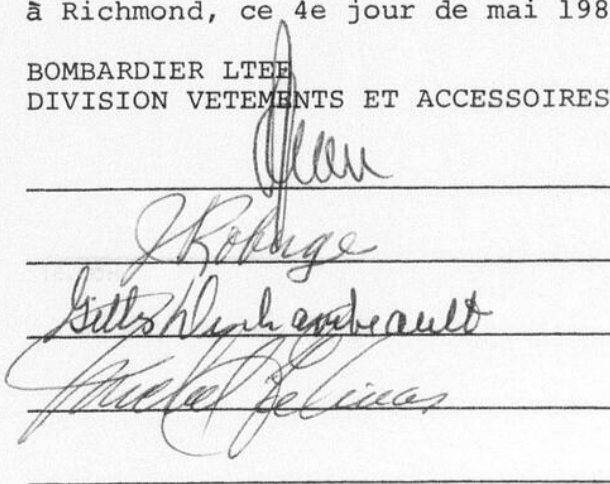 à Richmond, ce 4e jour de mai 198
BOMBARDIER LTEE
DIVISION VETEMENTS ET ACCESSOIRES
J Roberge
Gilles
Michel Gelinas